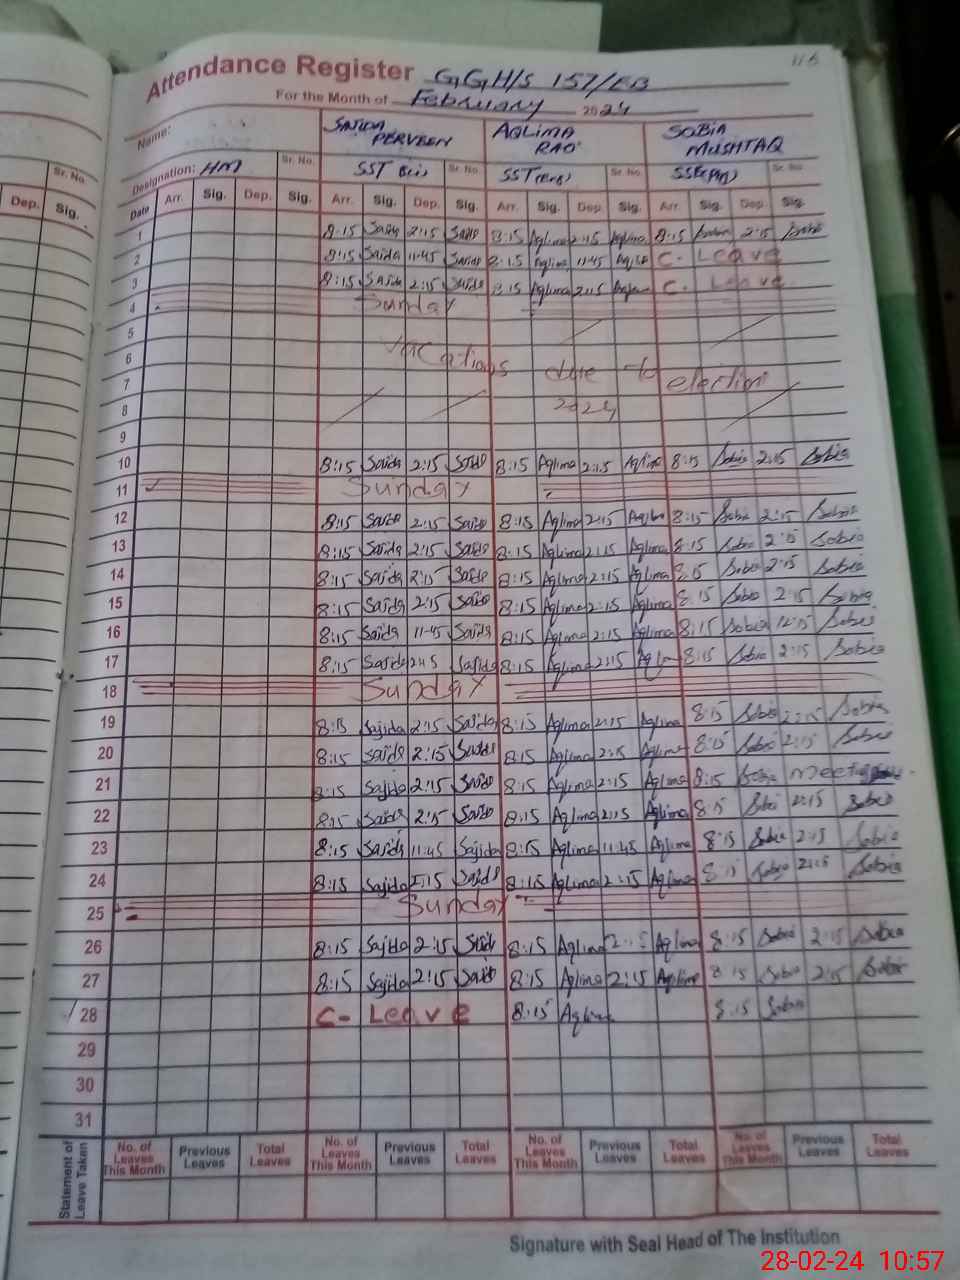 116
Attendance Register GGH/S 157/EB
For the Month of February 2024
Name: SAJIDA PERVEEN AQLIMA RAO SOBIA MUSHTAQ
Designation: HM Sr. No. SST Sr. No. SST Sr. No. Sr. No.
Date Arr. Sig. Dep. Sig. Arr. Sig. Dep. Sig. Arr. Sig. Dep. Sig. Arr. Sig. Dep. Sig.
Sr. No.
Dep. Sig.
1 8:15 Sajida 2:15 Sajida 8:15 Aqlima 2:15 Aqlima 8:15 Sobia 2:15 Sobia
2 8:15 Sajida 11:45 Sajida 8:15 Aqlima 11:45 Aqlima C- Leave
3 8:15 Sajida 2:15 Sajida 8:15 Aqlima 2:15 Aqlima C- Leave
4 Sunday
5
6 Vacations due to election
7
8 2024
9
10 8:15 Sajida 2:15 Sajida 8:15 Aqlima 2:15 Aqlima 8:15 Sobia 2:15 Sobia
11 Sunday
12 8:15 Sajida 2:15 Sajida 8:15 Aqlima 2:15 Aqlima 8:15 Sobia 2:15 Sobia
13 8:15 Sajida 2:15 Sajida 8:15 Aqlima 2:15 Aqlima 8:15 Sobia 2:15 Sobia
14 8:15 Sajida 2:15 Sajida 8:15 Aqlima 2:15 Aqlima 8:15 Sobia 2:15 Sobia
15 8:15 Sajida 2:15 Sajida 8:15 Aqlima 2:15 Aqlima 8:15 Sobia 2:15 Sobia
16 8:15 Sajida 11-45 Sajida 8:15 Aqlima 2:15 Aqlima 8:15 Sobia Sobia
17 8:15 Sajida Sajida 8:15 Aqlima 2:15 8:15 Sobia 2:15 Sobia
18 Sunday
19 8:15 Sajida 2:15 Sajida 8:15 Aqlima 2:15 Aqlima 8:15 Sobia 2:15 Sobia
20 8:15 Sajida 2:15 Sajida 8:15 Aqlima 2:15 Aqlima 8:15 Sobia 2:15 Sobia
21 8:15 Sajida 2:15 Sajida 8:15 Aqlima 2:15 Aqlima 8:15 Sobia meeting
22 8:15 Sajida 2:15 Sajida 8:15 Aqlima 2:15 Aqlima 8:15 Sobia 2:15 Sobia
23 8:15 Sajida 11:45 Sajida 8:15 Aqlima 11:45 Aqlima 8:15 Sobia 2:15 Sobia
24 8:15 Sajida 2:15 Sajida 8:15 Aqlima 2:15 Aqlima 8:15 Sobia 2:15 Sobia
25 Sunday
26 8:15 Sajida 2:15 Sajida 8:15 Aqlima 2:15 Aqlima 8:15 Sobia 2:15 Sobia
27 8:15 Sajida 2:15 Sajida 8:15 Aqlima 2:15 Aqlima 8:15 Sobia 2:15 Sobia
28 C- Leave 8:15 Aqlima 8:15 Sobia
29
30
31
Statement of Leave Taken No. of Leaves This Month Previous Leaves Total Leaves No. of Leaves This Month Previous Leaves Total Leaves No. of Leaves This Month Previous Leaves Total Leaves No. of Leaves This Month Previous Leaves Total Leaves
Signature with Seal Head of The Institution
28-02-24 10:57